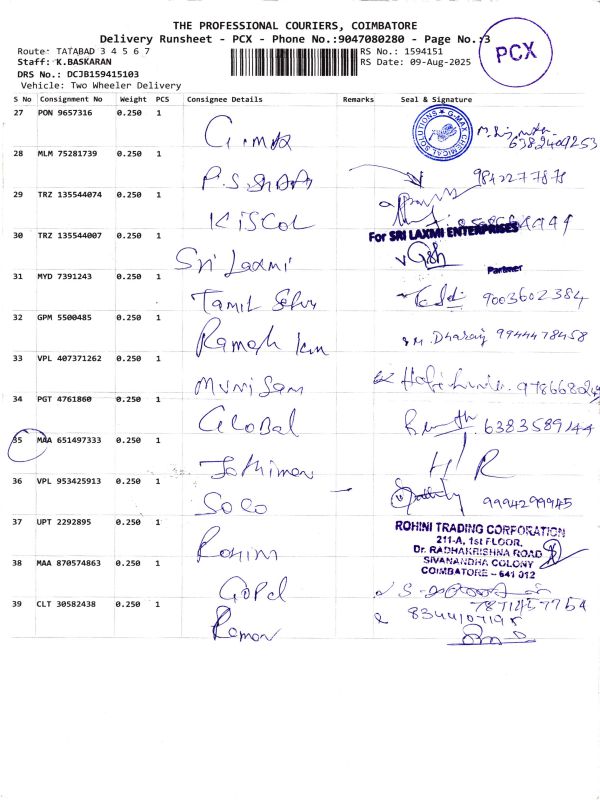 THE PROFESSIONAL COURIERS, COIMBATORE
Delivery Runsheet - PCX - Phone No.:9047080280 - Page No.:3
PCX
Route: TATABAD 3 4 5 6 7
RS No.: 1594151
Staff: K.BASKARAN
RS Date: 09-Aug-2025
DRS No.: DCJB159415103
Vehicle: Two Wheeler Delivery
S No Consignment No Weight PCS Consignee Details Remarks Seal & Signature
27 PON 9657316 0.250 1
G-MAX CHEMICAL SOLUTIONS
28 MLM 75281739 0.250 1
29 TRZ 135544074 0.250 1 KISCOL
30 TRZ 135544007 0.250 1 Sri Laxmi
For SRI LAXMI ENTERPRISES
Partner
31 MYD 7391243 0.250 1 Tamil Selvy 9003602384
32 GPM 5500485 0.250 1 Ramesh km M. Dharaj 9944478458
33 VPL 407371262 0.250 1
34 PGT 4761860 0.250 1 Global 6383589144
35 MAA 651497333 0.250 1 H/R
36 VPL 953425913 0.250 1 SOCO 9994299945
37 UPT 2292895 0.250 1 Rohini
ROHINI TRADING CORPORATION
211-A, 1st FLOOR,
Dr. RADHAKRISHNA ROAD
SIVANANDHA COLONY
COIMBATORE - 641 012
38 MAA 870574863 0.250 1 Gopal 7871457754
39 CLT 30582438 0.250 1 Raman